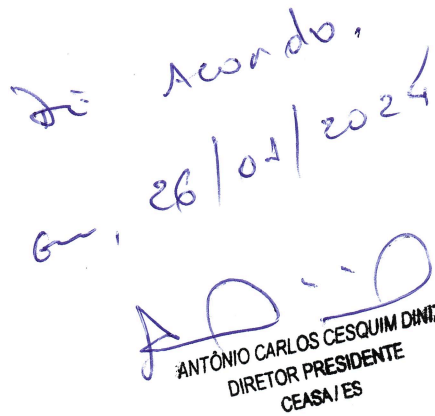 De Acordo.
Em, 26/01/2024
ANTÔNIO CARLOS CESQUIM DINIZ
DIRETOR PRESIDENTE
CEASA/ES